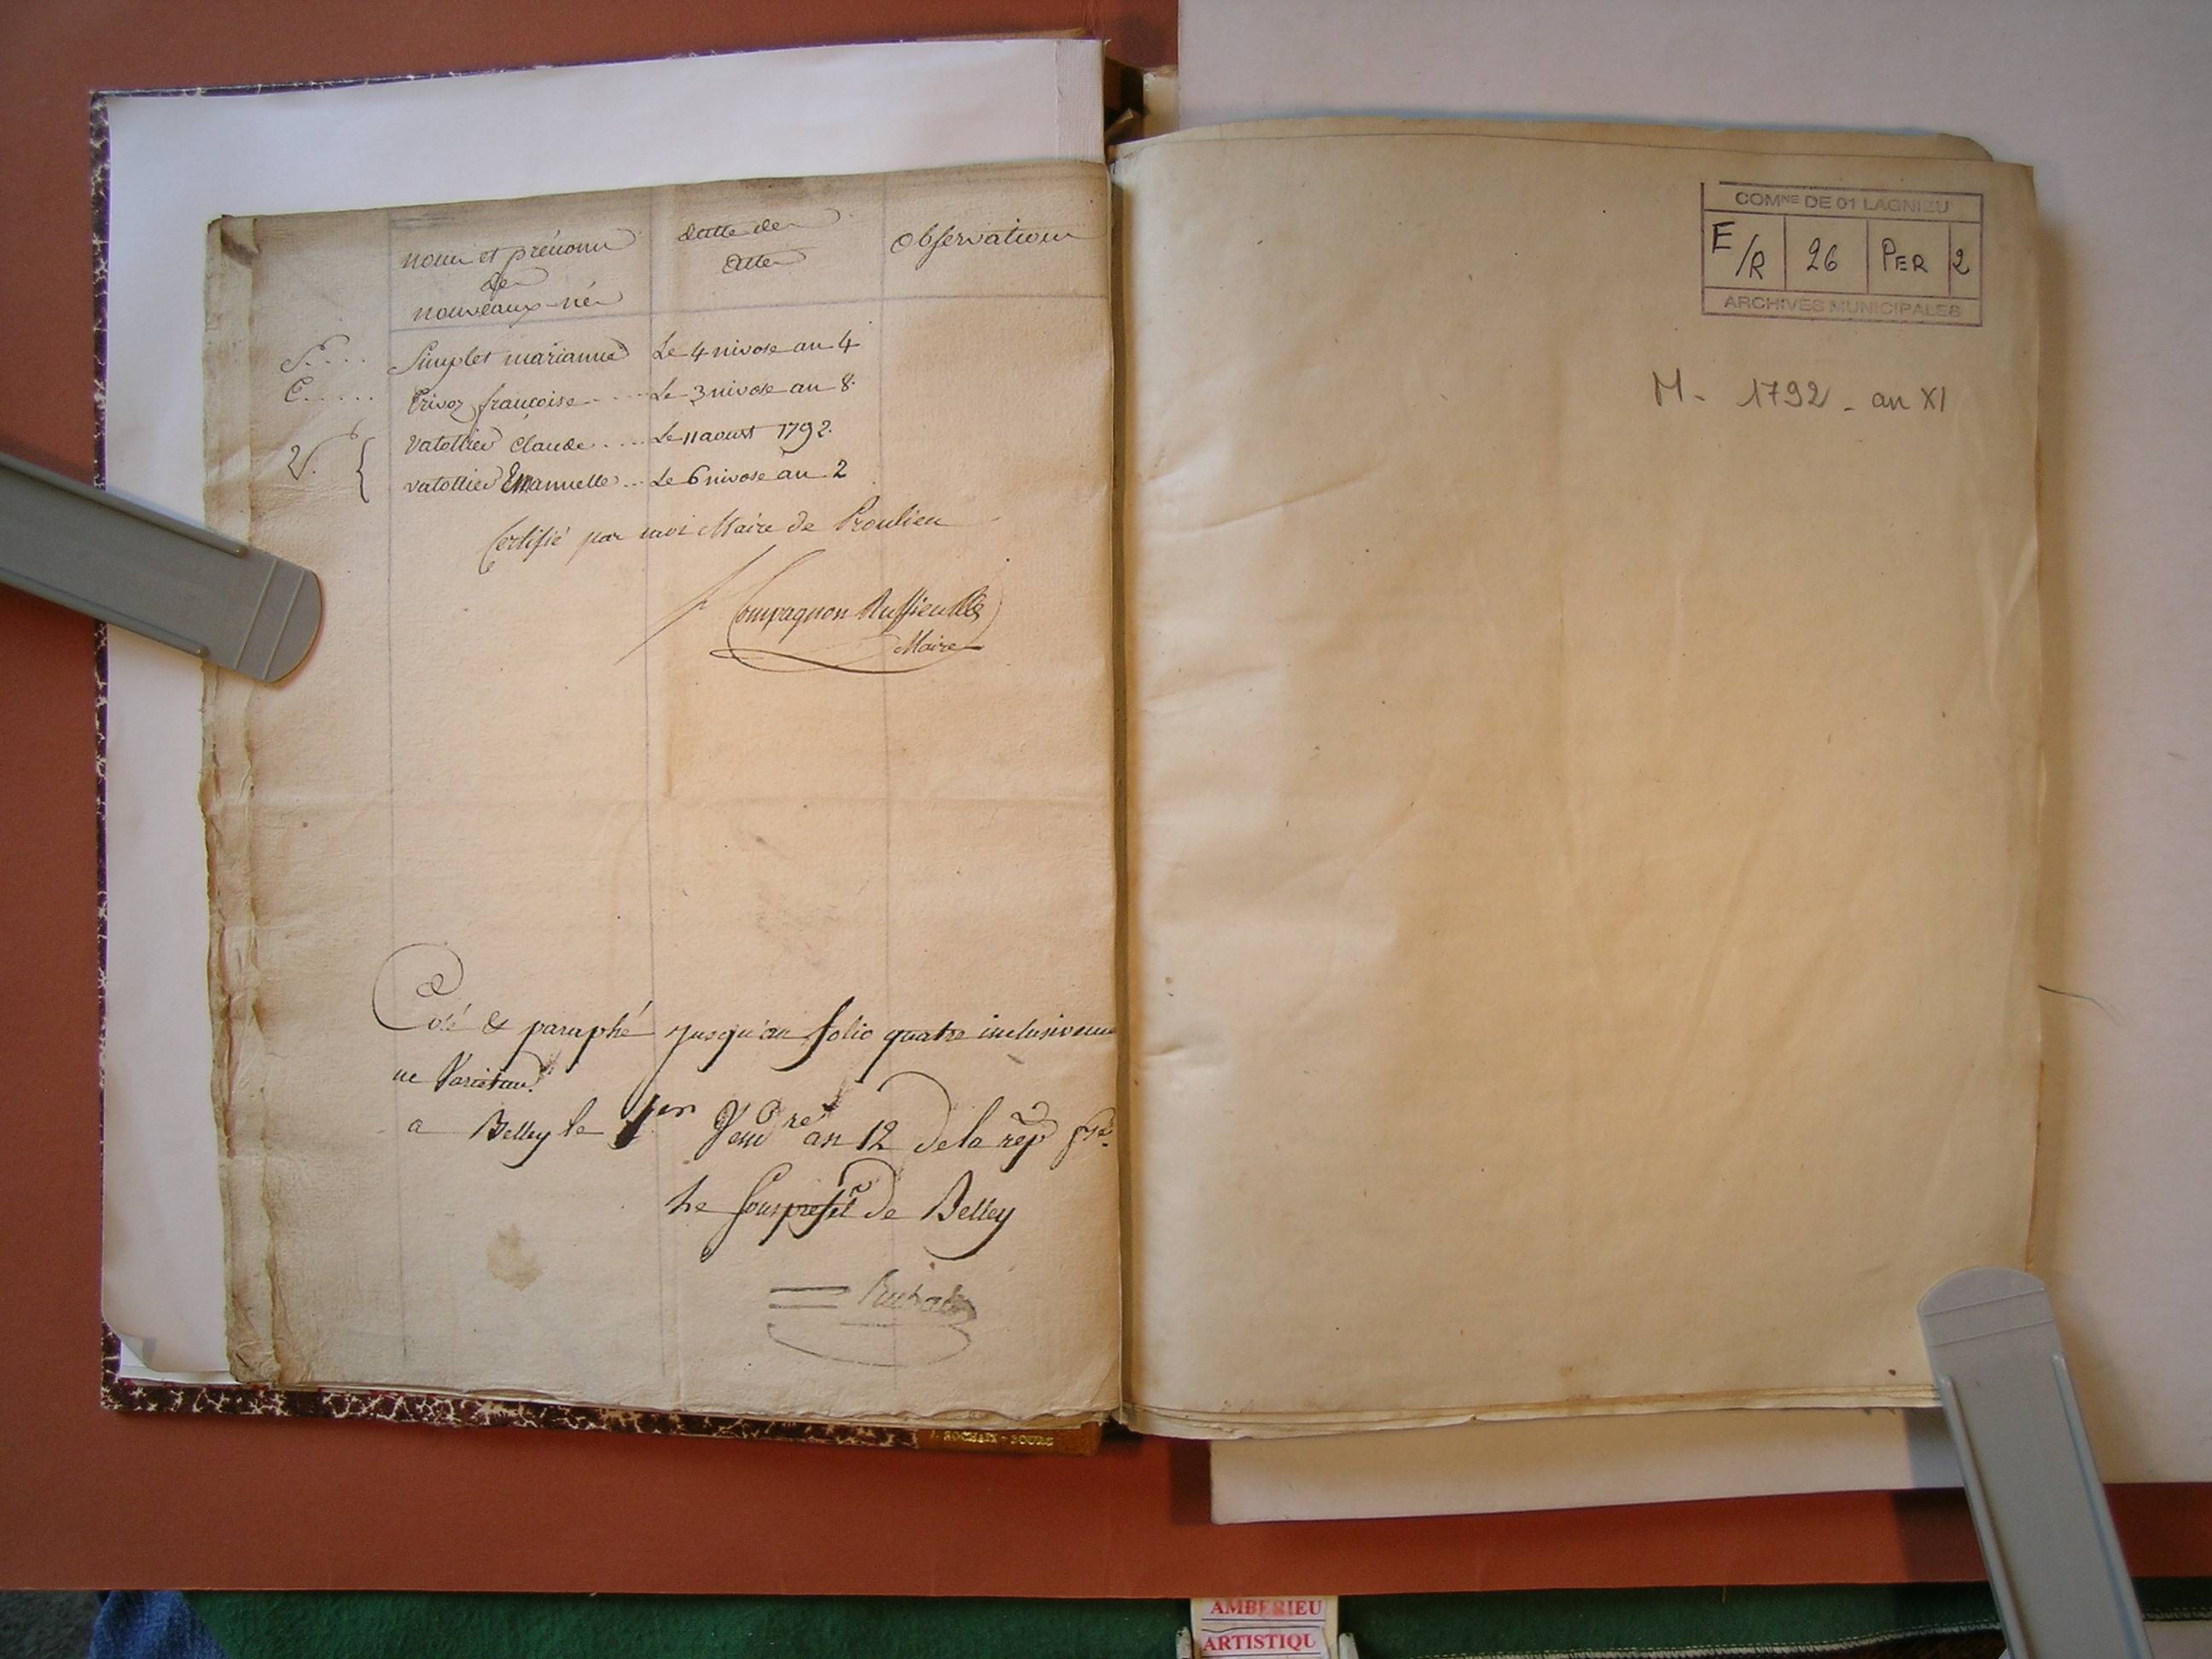 noms et prénoms
des
nouveaux-nés
datte des
actes
observations
S.... Simplet marianne Le 4 nivose an 4
T..... Trivoz françoise ...... Le 3 nivose an 8.
V. { Vatollier Claude .... Le 11 aoust 1792.
vatollier Emanuelle ... Le 6 nivose an 2
Certifié par moi Maire de Proulieu
Compagnon
Maire
Coté & paraphé jusqu'au folio quatre inclusiveme
ne Varietur.
a Belley le 1er Vend re an 12 de la rep fse.
Le sousprefet de Belley
COMNE DE 01 LAGNIEU
E/R 26 PER 2
ARCHIVES MUNICIPALES
M - 1792 - an XI
J. ROCHAIX - BOURG
AMBERIEU
ARTISTIQU